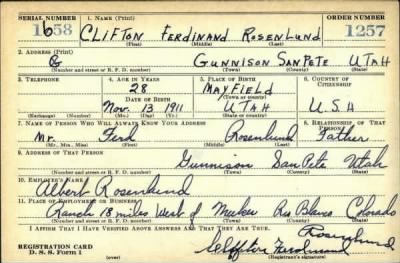 SERIAL NUMBER 1. NAME (Print) ORDER NUMBER
1658 CLIFTON FERDINAND ROSENLUND 1257
(First) (Middle) (Last)
2. ADDRESS (Print)
GUNNISON SANPETE UTAH
(Number and street or R. F. D. number) (Town) (County) (State)
3. TELEPHONE 4. AGE IN YEARS 5. PLACE OF BIRTH 6. COUNTRY OF CITIZENSHIP
28 MAYFIELD
DATE OF BIRTH (Town or county)
Nov. 13 1911 UTAH U.S.A
(Exchange) (Number) (Mo.) (Day) (Yr.) (State or country)
7. NAME OF PERSON WHO WILL ALWAYS KNOW YOUR ADDRESS 8. RELATIONSHIP OF THAT PERSON
Mr. Ferd Rosenlund Father
(Mr., Mrs., Miss) (First) (Middle) (Last)
9. ADDRESS OF THAT PERSON
Gunnison SanPete Utah
(Number and street or R. F. D. number) (Town) (County) (State)
10. EMPLOYER'S NAME
Albert Rosenlund
11. PLACE OF EMPLOYMENT OR BUSINESS
Ranch 18 miles West of Meeker Rio Blanco Colorado
(Number and street or R. F. D. number) (Town) (County) (State)
I AFFIRM THAT I HAVE VERIFIED ABOVE ANSWERS AND THAT THEY ARE TRUE.
REGISTRATION CARD Cliffton Ferdinand Rosenlund
D. S. S. FORM 1 (over) (Registrant's signature)